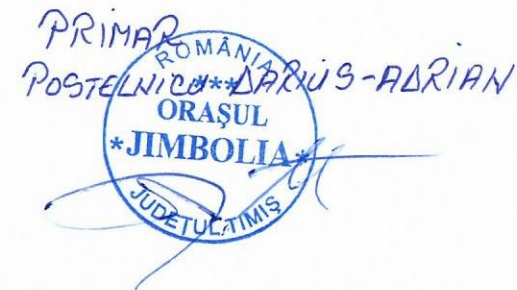 PRIMAR
POSTELNICU DARIUS-ADRIAN
ROMÂNIA
***
ORAȘUL
*JIMBOLIA*
JUDEȚUL TIMIȘ